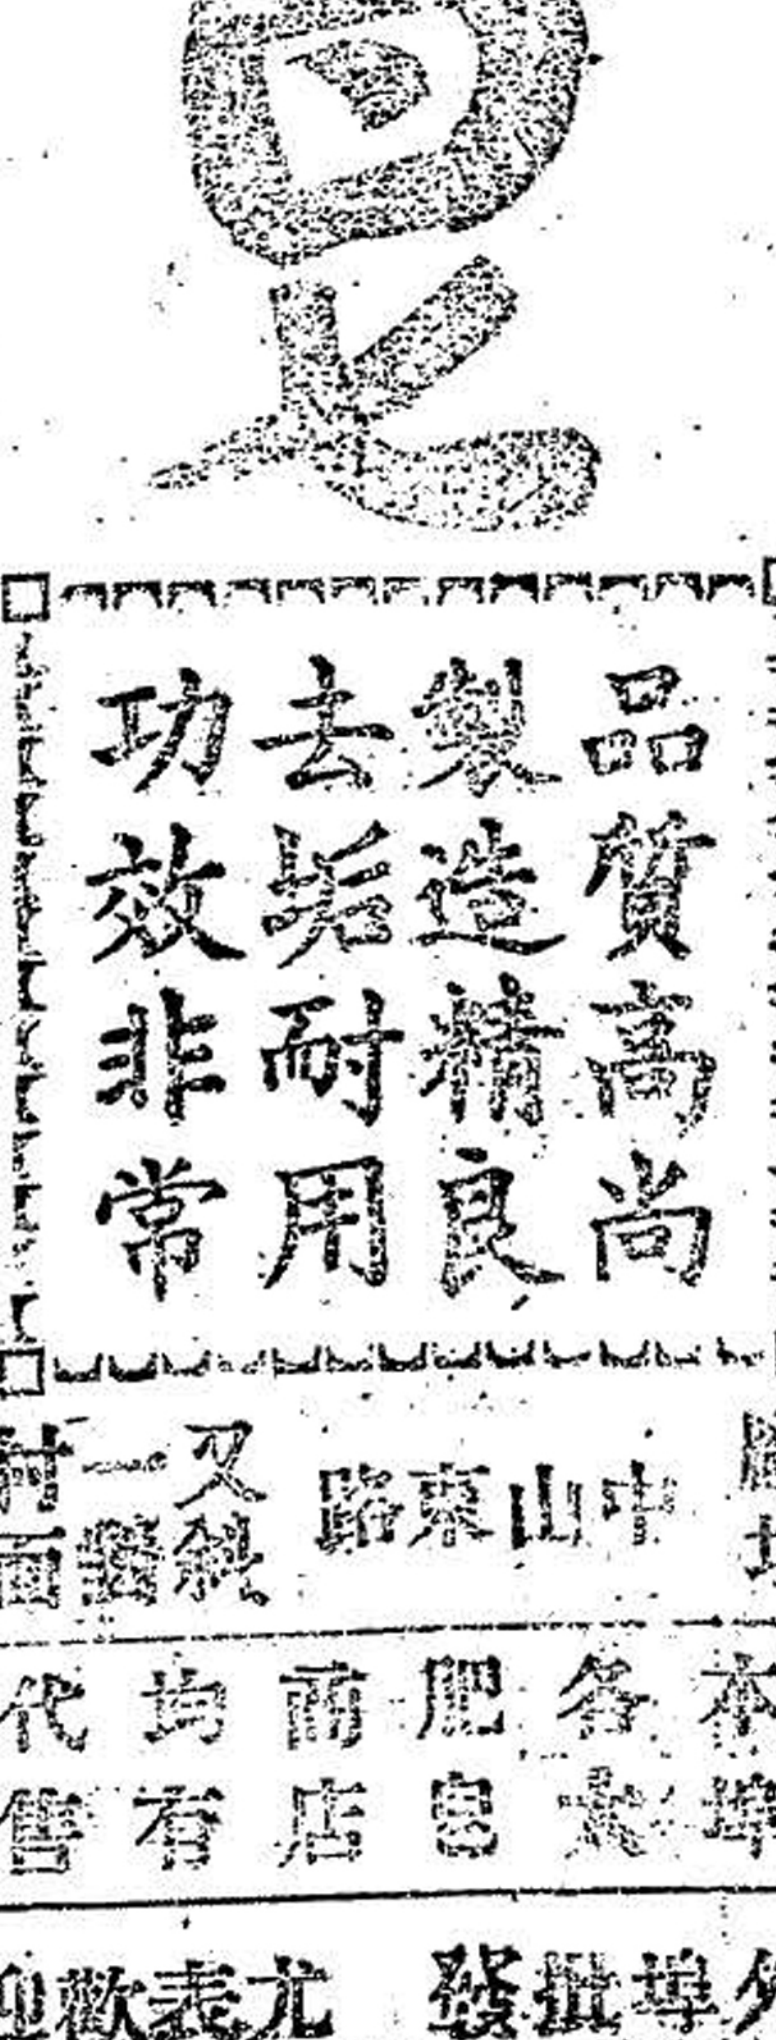 品質高尚
製造精良
去垢耐用
功效非常
中山東路
本埠
各大
肥皂
商店
均有
代售
外埠批發 尤表歡迎